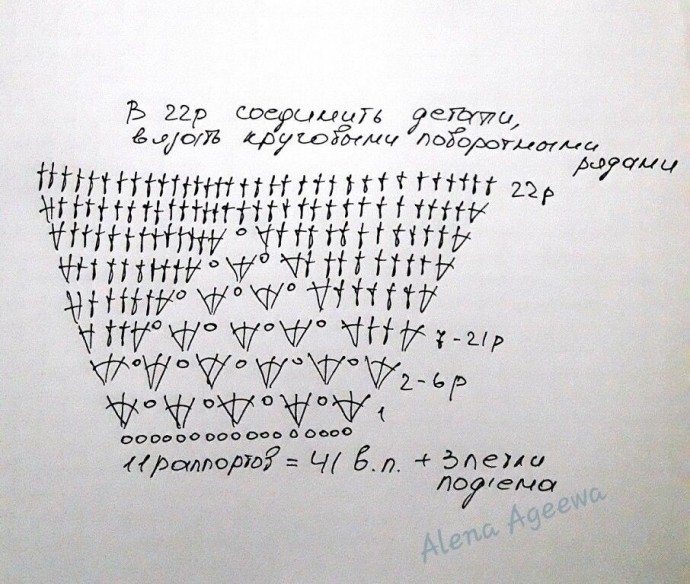 В 22р соединить детали,
вязать круговыми поворотными
рядами
22р
7-21р
2-6р
1
11 раппортов = 41 в.п. + 3 петли
подъема
Alena Ageewa